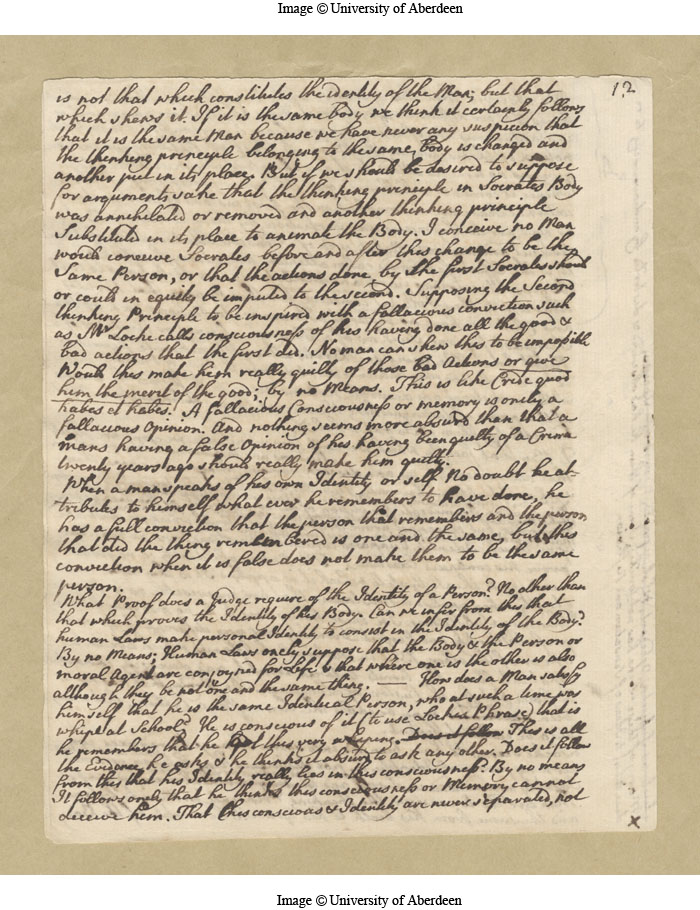 Image © University of Aberdeen
12
is not that which constitutes the identity of the Man; but that
which shews it. If it is the same body we think it certainly follows
that it is the same Man because we have never any suspicion that
the thinking principle belonging to the same body is changed and
another put in its place. But if we should be desired to suppose
for arguments sake that the thinking principle in Socrates Body
was annihilated or removed and another thinking principle
Substituted in its place to animate the Body. I conceive no Man
would conceive Socrates before and after this change to be the
Same Person, or that the actions done by the first Socrates should
or could in equity be imputed to the second. Supposing the Second
thinking Principle to be inspired with a fallacious conviction such
as Mr Locke calls consciousness of his having done all the good &
bad actions that the first did. No man can shew this to be impossible
Would this make him really guilty of those bad Actions or give
him the merit of the good; by no Means. This is like Crede quod
habes et habes. A fallacious Consciousness or memory is onely a
fallacious Opinion. And nothing seems more absurd than that a
mans having a false Opinion of his having been guilty of a Crime
twenty years ago should really make him guilty.
When a man speaks of his own Identity or self. No doubt he at-
tributes to himself what ever he remembers to have done, he
has a full conviction that the person that remembers and the person
that did the thing remembered is one and the same, but this
conviction when it is false does not make them to be the same
person.
What Proof does a Judge require of the Identity of a Person? No other than
that which proves the Identity of his Body. Can we infer from this that
human Laws make personal Identity to consist in the Identity of the Body?
By no Means; Human Laws onely suppose that the Body & the Person or
moral Agent are conjoyned for Life & that where one is the other is also
although they be not one and the same thing. —— How does a Man satisfy
himself that he is the same Identical Person, who at such a time was
whipt at School? He is conscious of it (to use Lockes Phrase) that is
he remembers that he got this very whipping. Does it follow This is all
the Evidence he asks & he thinks it absurd to ask any other. Does it follow
from this that his Identity really lies in this consciousness? By no means
It follows onely that he thinks this consciousness or Memory cannot
deceive him. That this conscious & Identity are never separated, not
x
Image © University of Aberdeen